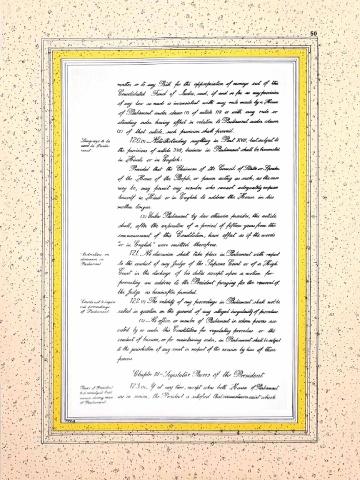 50
matter, or to any Bill for the appropriation of moneys out of the
Consolidated Fund of India, and, if and so far as any provision
of any law so made is inconsistent with any rule made by a House
of Parliament under clause (1) of article 118 or with any rule or
standing order having effect in relation to Parliament under clause
(2) of that article, such provision shall prevail.
Language to be used in Parliament.
120. (1) Notwithstanding anything in Part XVII, but subject to
the provisions of article 348, business in Parliament shall be transacted
in Hindi or in English:
Provided that the Chairman of the Council of States or Speaker
of the House of the People, or person acting as such, as the case
may be, may permit any member who cannot adequately express
himself in Hindi or in English to address the House in his
mother tongue.
(2) Unless Parliament by law otherwise provides, this article
shall, after the expiration of a period of fifteen years from the
commencement of this Constitution, have effect as if the words
"or in English" were omitted therefrom.
Restriction on discussion in Parliament.
121. No discussion shall take place in Parliament with respect
to the conduct of any Judge of the Supreme Court or of a High
Court in the discharge of his duties except upon a motion for
presenting an address to the President praying for the removal of
the Judge as hereinafter provided.
Courts not to inquire into proceedings of Parliament.
122. (1) The validity of any proceedings in Parliament shall not be
called in question on the ground of any alleged irregularity of procedure.
(2) No officer or member of Parliament in whom powers are
vested by or under this Constitution for regulating procedure or the
conduct of business, or for maintaining order, in Parliament shall be subject
to the jurisdiction of any court in respect of the exercise by him of those
powers.
Chapter III—Legislative Powers of the President
Power of President to promulgate Ordinances during recess of Parliament.
123. (1) If at any time, except when both Houses of Parliament
are in session, the President is satisfied that circumstances exist which